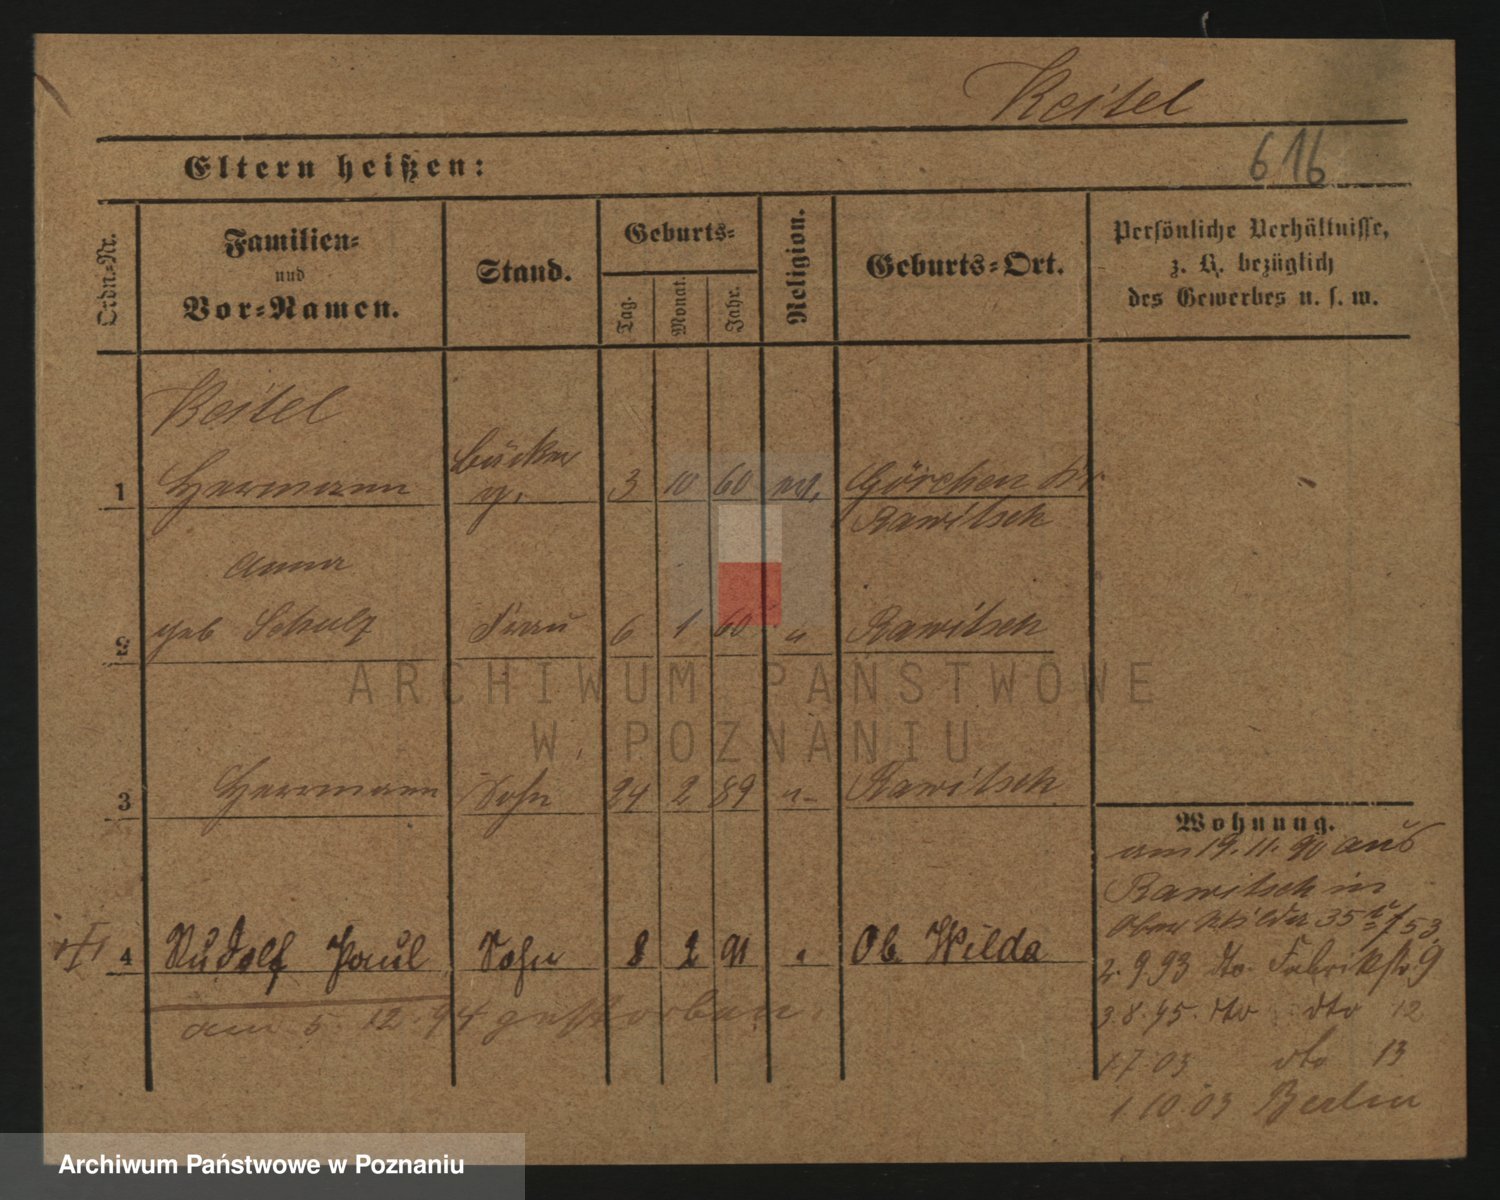 Keitel
616
Eltern heißen:
Ordn.-Nr.
Familien-
und
Vor-Namen.
Stand.
Geburts-
Tag.
Monat.
Jahr.
Religion.
Geburts-Ort.
Persönliche Verhältnisse,
z. B. bezüglich
des Gewerbes u. s. w.
Keitel
1 Hermann 3 10 60 Görchen Kr
Rawitsch
Anna
2 geb Schulz Frau 6 1 60 " Rawitsch
3 Herrmann Sohn 24 2 89 " Rawitsch
4 Rudolf Paul Sohn 8 2 91 " Ob. Wilda
am 5. 12. 94 gestorben.
Wohnung.
am 19. 11. 90 aus
Rawitsch in
Ober Wilda 35 53.
2. 9. 93 dto. Fabrikstr. 9
3. 8. 95. dto dto 12
1. 7. 03 dto 13
1. 10. 03 Berlin
ARCHIWUM PAŃSTWOWE
W POZNANIU
Archiwum Państwowe w Poznaniu